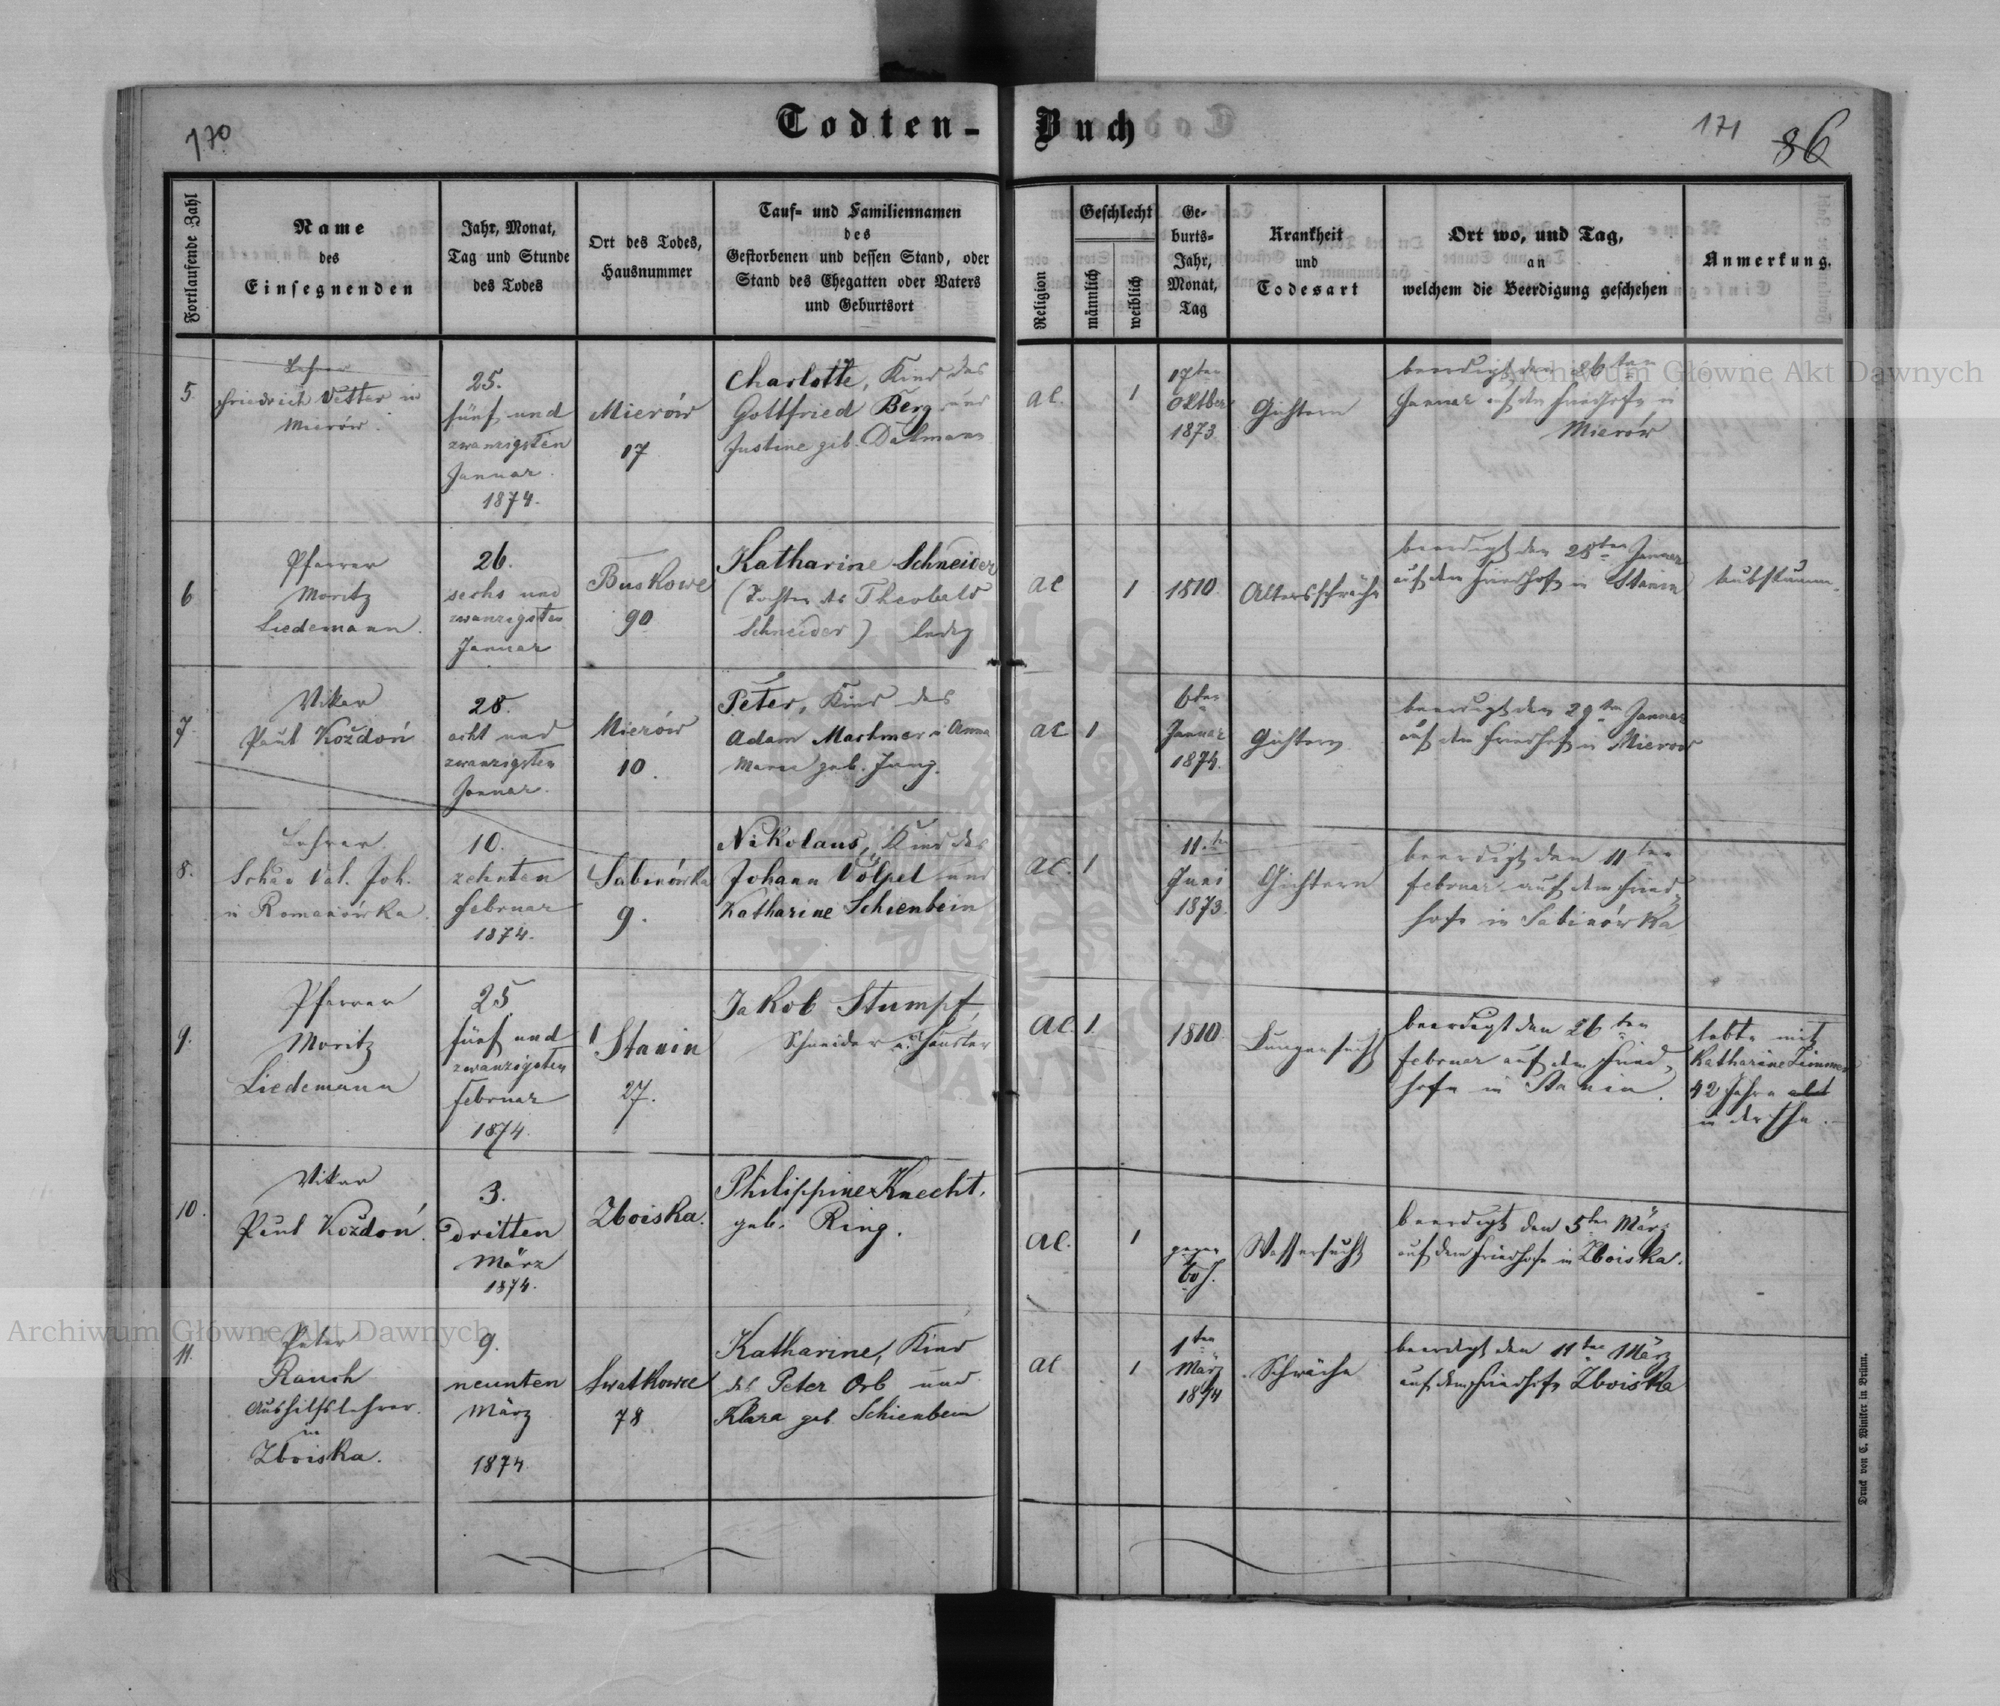 170
Todten-Buch
171
86
Fortlaufende Zahl
Name
des
Einsegnenden
Jahr, Monat,
Tag und Stunde
des Todes
Ort des Todes,
Hausnummer
Tauf- und Familiennamen
des
Gestorbenen und dessen Stand, oder
Stand des Ehegatten oder Vaters
und Geburtsort
Religion
Geschlecht
männlich
weiblich
Ge-
burts-
Jahr,
Monat,
Tag
Krankheit
und
Todesart
Ort wo, und Tag,
an
welchem die Beerdigung geschehen
Anmerkung.
5
Lehrer
Friedrich Vetter in
Mierów.
25.
fünf und
zwanzigsten
Januar.
1874.
Mierów
17
Charlotte, Kind des
Gottfried Berg und
Justine geb. Dalmann
ac.
1
17ten
Oktber
1873
Gichtern
beerdigt den 26ten
Januar auf dem Friedhofe in
Mierów
6
Pfarrer
Moritz
Liedemann.
26.
sechs und
zwanzigsten
Januar
Buskowe
90
Katharine Schneider
(Tochter des Theobald
Schneider) ledig
ac
1
1810.
Altersschwäche
beerdigt den 28ten Januar
auf dem Friedhofe in Stanin
taubstumm.
7.
Vikar
Paul Koždoń
28.
acht und
zwanzigsten
Januar.
Mierów
10.
Peter, Kind des
Adam Manz und Anna
Maria geb. Jung.
ac
1
6ten
Januar
1874.
Gichtern
beerdigt den 29ten Januar
auf dem Friedhof in Mierow
8.
Lehrer
Schan Val. Joh.
in Romanówka.
10.
zehnten
Februar
1874.
Sabinówka
9.
Nikolaus, Kind des
Johann Völpel und
Katharine Schienbein
ac.
1
11.ten
Juni
1873.
Gichtern
beerdigt den 11ten
Februar auf dem Fried-
hofe in Sabinówka
9.
Pfarrer
Moritz
Liedemann
25
fünf und
zwanzigsten
Februar
1874.
Stanin
27.
Jakob Stumpf,
Schneider
ac.
1.
1810
Lungensucht
beerdigt den 26ten
Februar auf dem Fried-
hofe in Stanin.
lebte mit
Katharine Zimmer
42 Jahre alt
in der Ehe.
10.
Vikar
Paul Koždoń.
3.
dritten
März
1874.
Zboiska.
Philippine Knecht,
geb. Ring.
ac.
1
gegen
60 J.
Wassersucht
beerdigt den 5ten März
auf dem Friedhofe in Zboiska.
11.
Peter
Rausch
Aushilfslehrer.
in
Zboiska.
9.
neunten
März
1874.
Swatkowce
78
Katharine, Kind
des Peter Orb und
Klara geb. Schienbein
ac
1
1ten
März
1874
Schwäche
beerdigt den 11ten März
auf dem Friedhofe Zboiska
Druck von C. Winiker in Brünn.
Archiwum Główne Akt Dawnych
Archiwum Główne Akt Dawnych